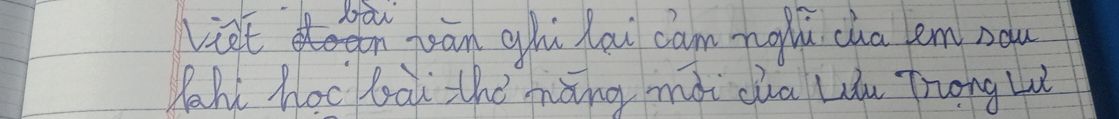 Viết bài văn ghi lại cảm nghĩ của em sau
khi học bài thơ nắng mới của Lưu Trọng Lư